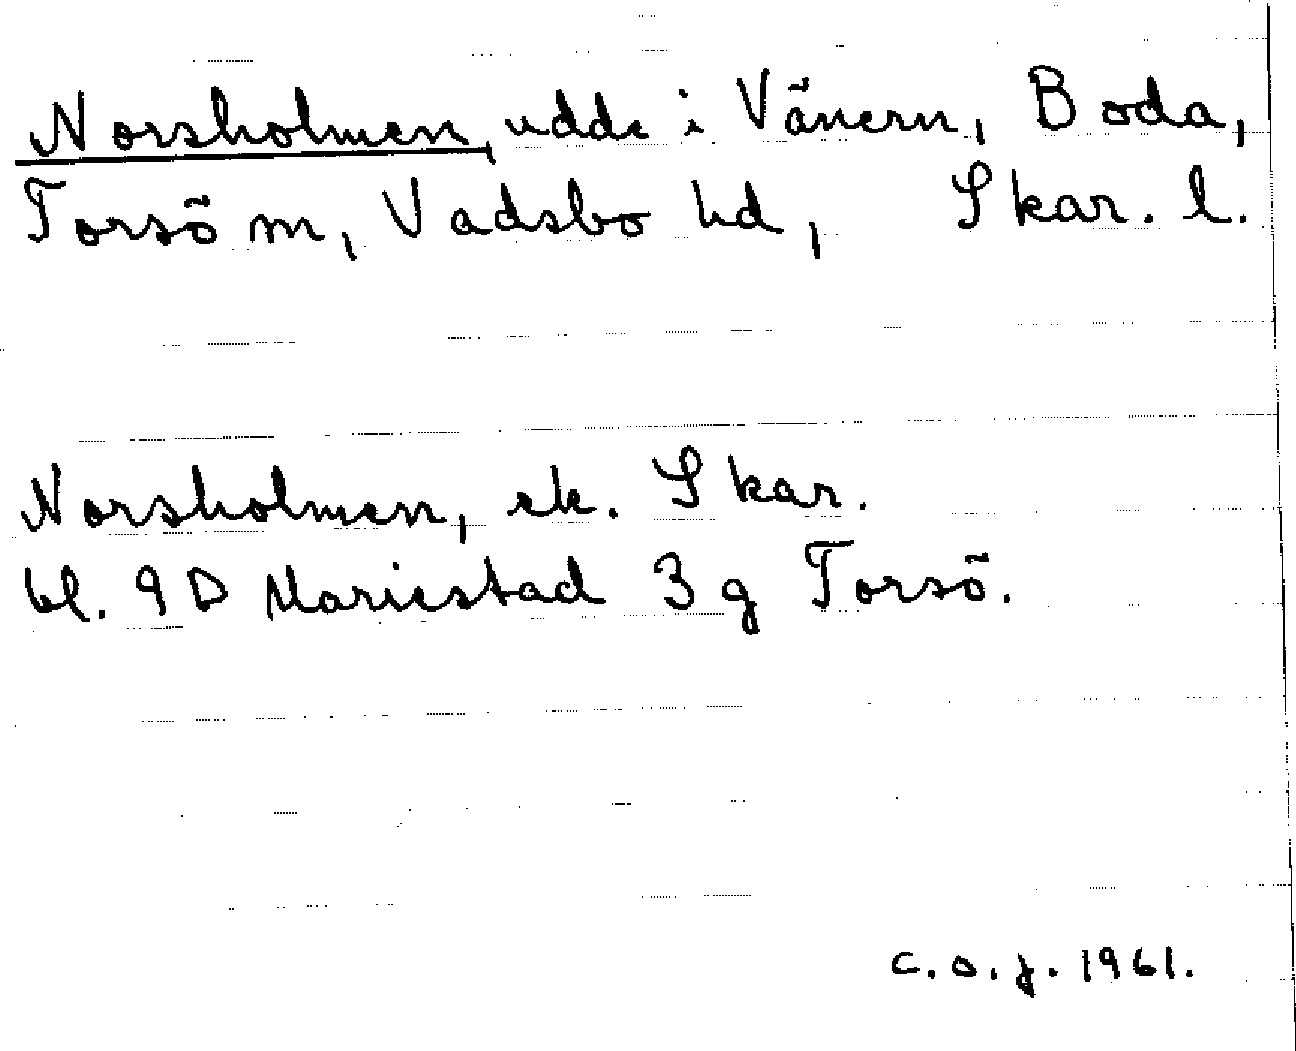 Norsholmen, udde i Vänern, Boda,
Torsö sn, Vadsbo hd, Skar. l.
Norsholmen, ek. Skar.
bl. 9D Mariestad 3 g Torsö.
C.O.J. 1961.